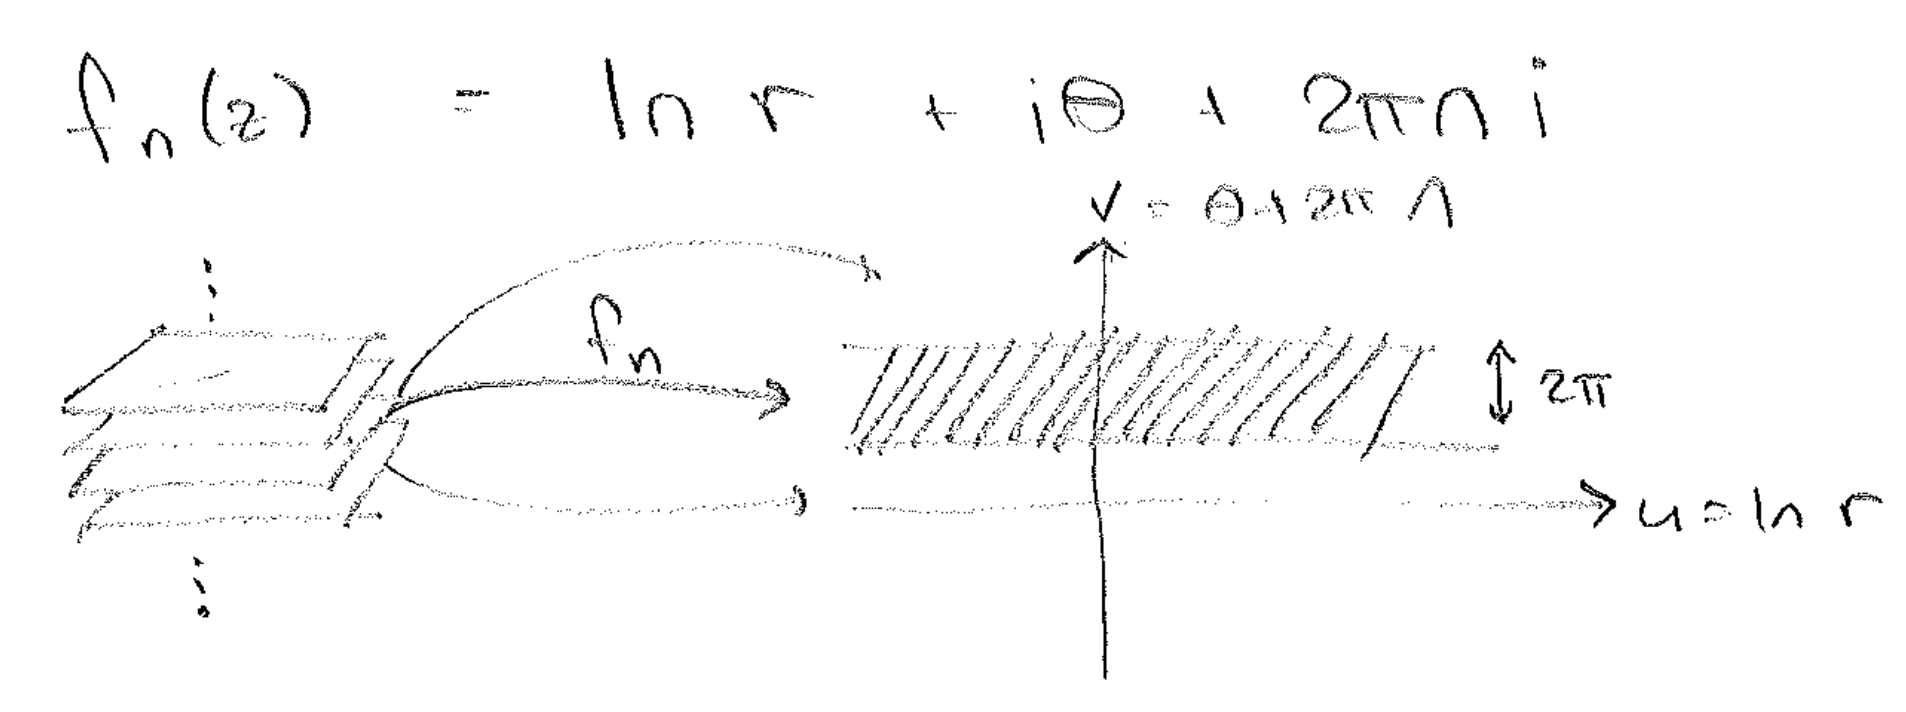 fₙ(z) = ln r + iθ + 2πn i
v = θ + 2π n
fₙ
2π
u = ln r